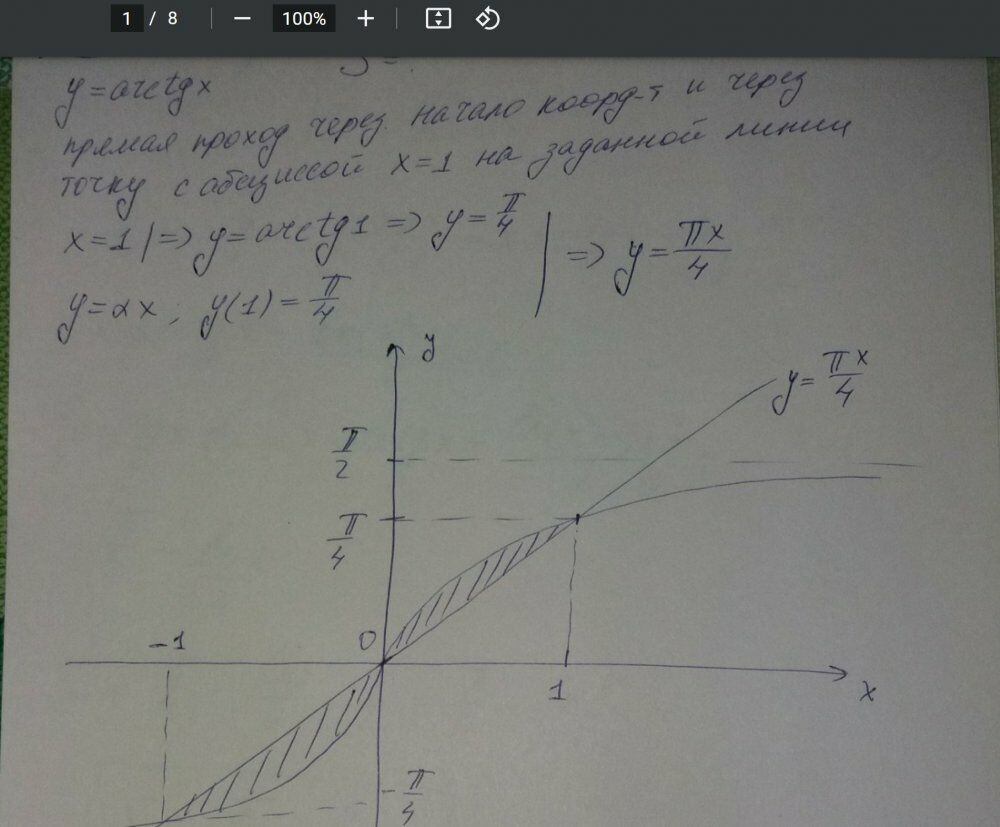 1 / 8 100%
y = arctg x
прямая проход через начало коорд-т и через
точку с абсциссой x=1 на заданной линии
x=1 | => y = arctg 1 => y = π/4 | => y = πx/4
y = αx ; y(1) = π/4
y
y = πx/4
π/2
π/4
-1 0
1 x
-π/4